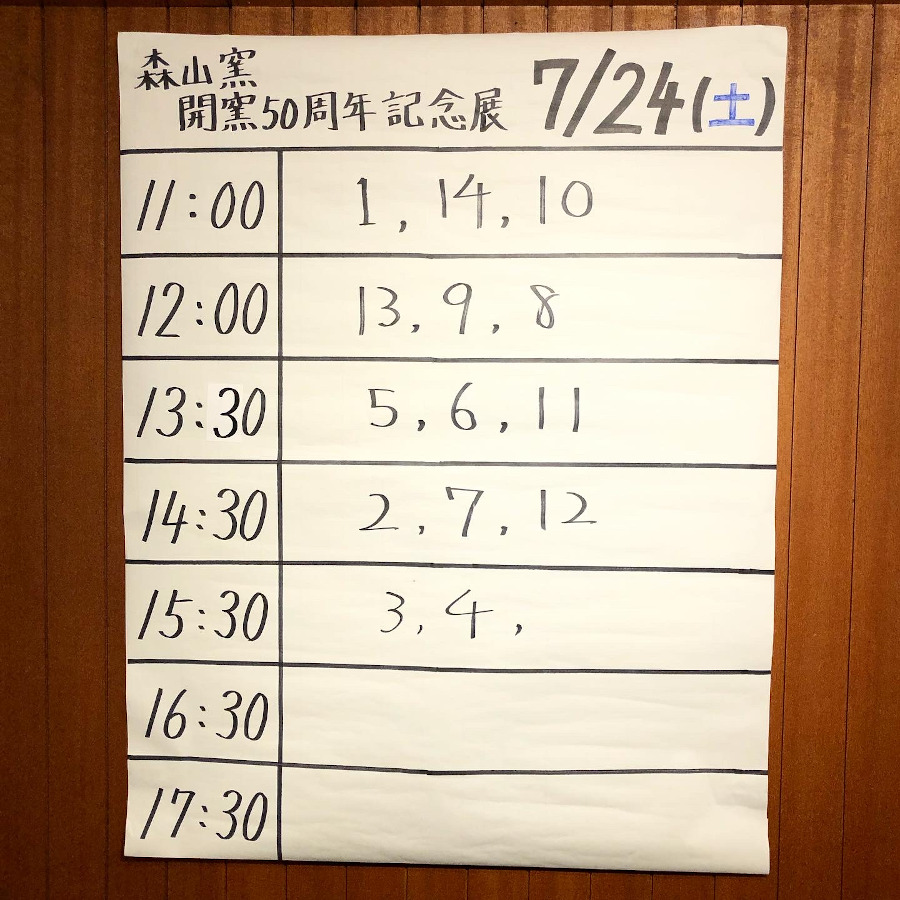 森山窯
開窯50周年記念展 7/24(土)
11:00 1, 14, 10
12:00 13, 9, 8
13:30 5, 6, 11
14:30 2, 7, 12
15:30 3, 4,
16:30
17:30